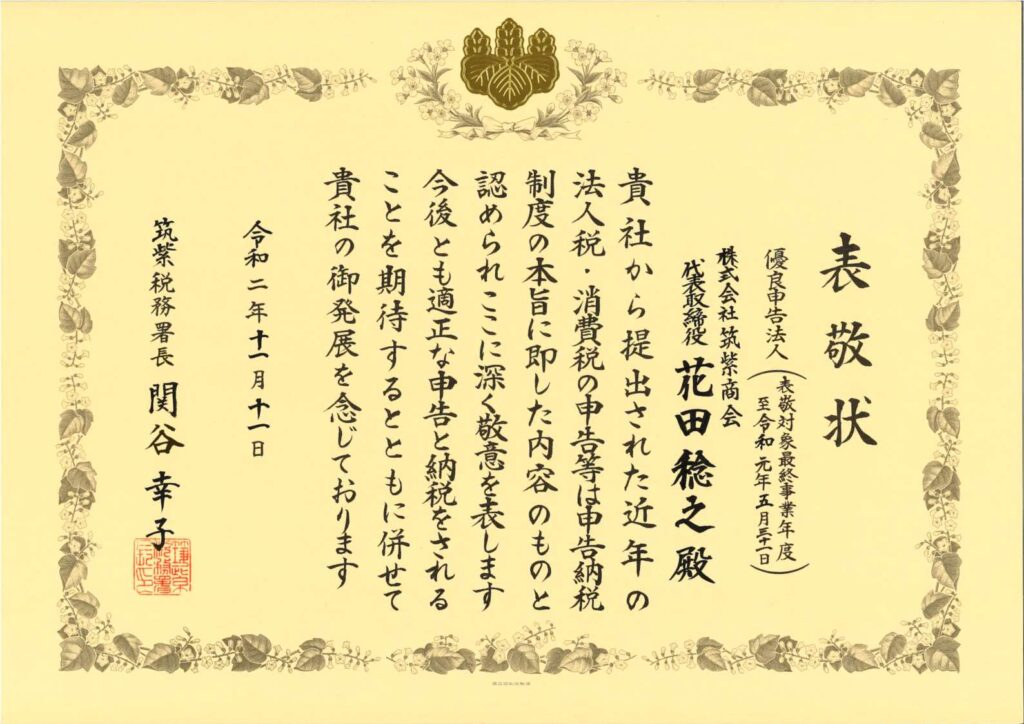 表敬状
優良申告法人
表敬対象最終事業年度
至令和元年五月三十一日
株式会社筑紫商会
代表取締役 花田稔之殿
貴社から提出された近年の
法人税・消費税の申告等は申告納税
制度の本旨に即した内容のものと
認められここに深く敬意を表します
今後とも適正な申告と納税をされる
ことを期待するとともに併せて
貴社の御発展を念じております
令和二年十一月十一日
筑紫税務署長 関谷幸子